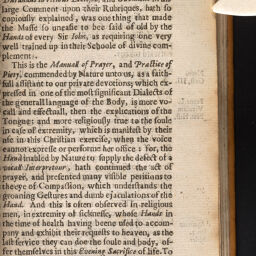 large Comment upon their Rubriques, hath so
copiously explained, was one thing that made
the Masse so uneasie to bee said of old by the
Hands of every Sir Iohn, as requiring one very
well trained up in their Schoole of divine com-
plement.
This is the Manuall of Prayer, and Practise of
Piety, commended by Nature unto us, as a faith-
full assistant to our private devotions; which ex-
pressed in one of the most significant Dialects of
the generall language of the Body, is more vo-
call and effectuall, then the explications of the
Tongue: and more religiously true to the soule
in case of extremity, which is manifest by their
use in this Christian exercise, when the voice
cannot expresse or performe her office: for, the
Hand inabled by Nature to supply the defect of a
vocall Interpretour, hath continued the act of
prayer, and presented many visible petitions to
the eye of Compassion, which understands the
groaning Gestures and dumb ejaculations of the
Hand. And this is often observed in religious
men, in extremity of sicknesse, whose Hands in
the time of health having been used to accom-
pany and exhibit their requests to heaven, as the
last service they can doe the soule and body, of-
fer themselves in this Evening Sacrifice of life. To